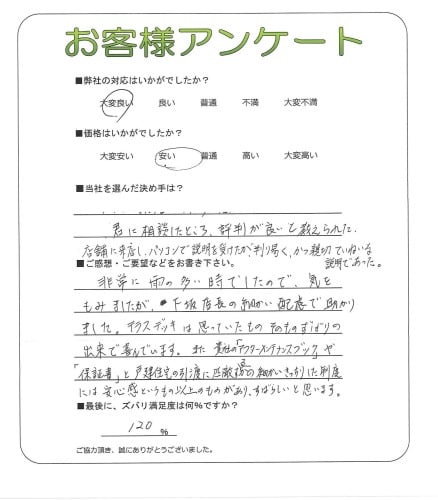 お客様アンケート
■弊社の対応はいかがでしたか?
大変良い 良い 普通 不満 大変不満
■価格はいかがでしたか?
大変安い 安い 普通 高い 大変高い
■当社を選んだ決め手は?
君に相談したところ、評判が良いと教えられた。
店舗に来店し、パソコンで説明を受けたが、判り易く、かつ親切ていねいな
説明であった。
■ご感想・ご要望などをお書き下さい。
非常に雨の多い時でしたので、気を
もみましたが、下坂店長の細かい配慮で助かり
ました。テラスデッキは思っていたものそのものずばりの
出来で喜んでいます。また貴社の「アフターメンテナンスブック」や
「保証書」と戸建住宅の引渡に匹敵する細かいきっちりした制度
には安心感というもの以上のものがあり、すばらしいと思います。
■最後に、ズバリ満足度は何%ですか?
120 %
ご協力頂き、誠にありがとうございました。